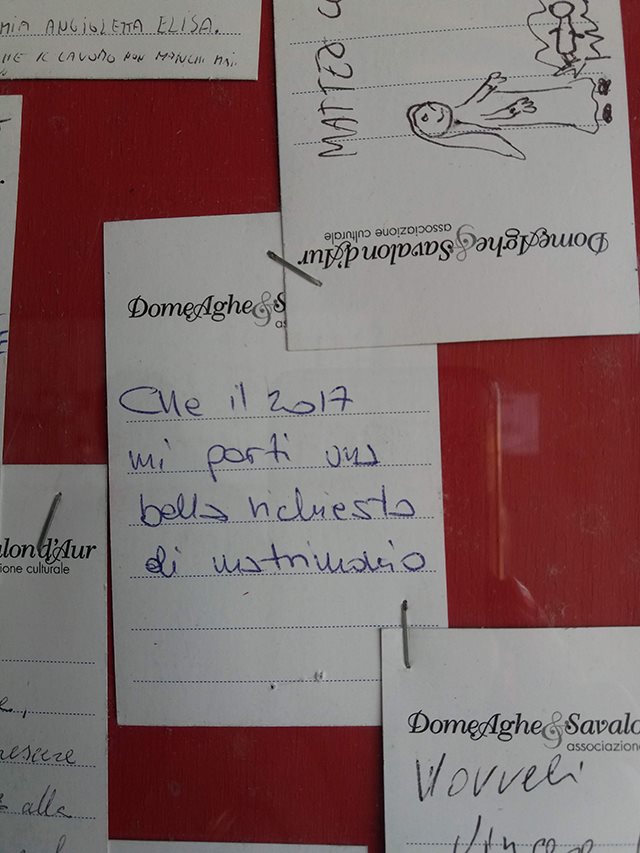 MIA ANGIOLETTA ELISA.
CHE IL LAVORO NON MANCHI MAI.
MATTEO
DomęAghe&Savalond'Aur
associazione culturale
DomęAghe&
Che il 2017
mi porti una
bella richiesta
di matrimonio
alond'Aur
zione culturale
alla
DomęAghe&Savalo
associazione
Vorrei